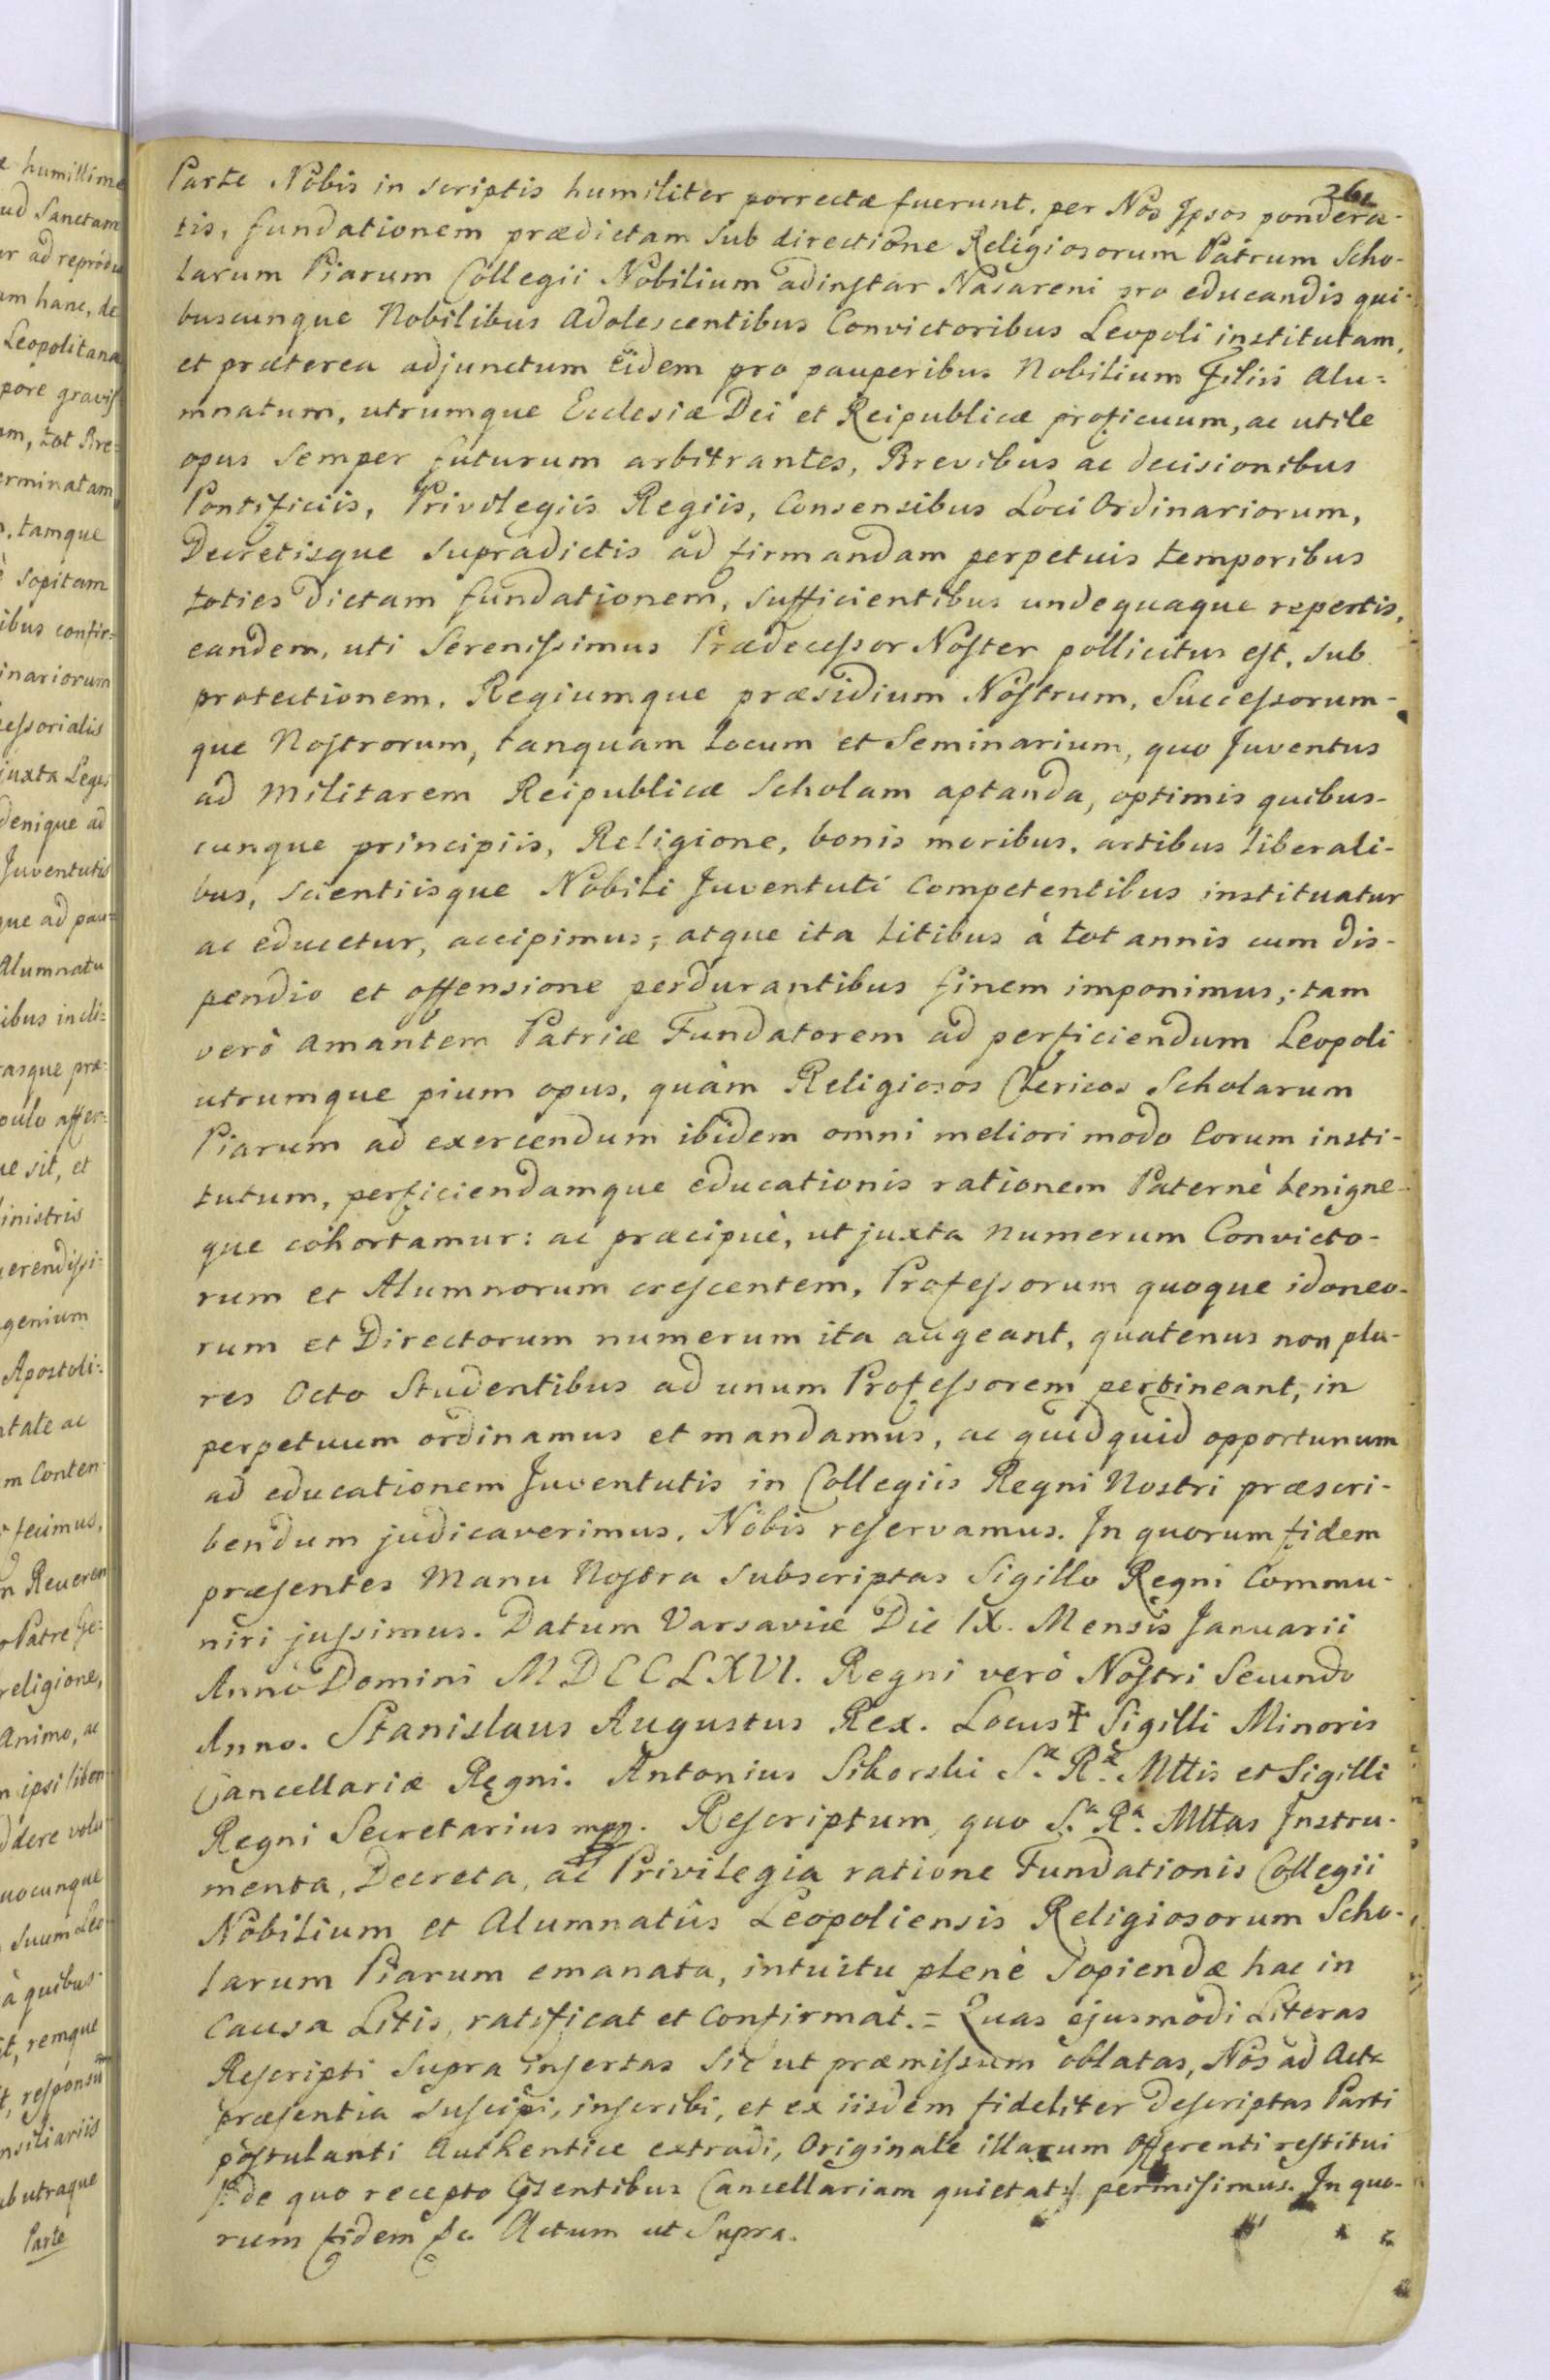 261
Parte Nobis in scriptis humiliter porrectæ fuerunt, per Nos Ipsos pondera-
tis, fundationem prædictam sub directione Religiosorum Patrum Scho-
larum Piarum Collegii Nobilium adinstar Nasareni pro educandis qui-
buscunque Nobilibus Adolescentibus Convictoribus Leopoli institutam,
et præterea adjunctum eidem pro pauperibus Nobilium Filiis Alu=
mnatum, utrumque Ecclesiæ Dei et Reipublicæ proficuum, ac utile
opus semper futurum arbitrantes, Brevibus ac decisionibus
Pontificiis, Privilegiis Regiis, Consensibus Loci Ordinariorum,
Decretisque supradictis ad firmandam perpetuis temporibus
toties dictam fundationem, sufficientibus undequaque repertis,
eandem, uti Serenissimus Prædecessor Noster pollicitus est, sub
protectionem, Regiumque præsidium Nostrum, Successorum-
que Nostrorum, tanquam Locum et Seminarium, quo Juventus
ad Militarem Reipublicæ Scholam aptanda, optimis quibus-
cunque principiis, Religione, bonis moribus, artibus liberali-
bus, scientiisque Nobili Juventuti Competentibus instituatur
ac educetur, accipimus; atque ita litibus à tot annis cum dis-
pendio et offensione perdurantibus finem imponimus; tam
verò Amantem Patriæ Fundatorem ad perficiendum Leopoli
utrumque pium opus, quàm Religiosos Clericos Scholarum
Piarum ad exercendum ibidem omni meliori modo Eorum insti-
tutum, perficiendamque educationis rationem Paternè benigne-
que cohortamur: ac præcipuè, ut juxta numerum Convicto-
rum et Alumnorum crescentem, Professorum quoque idoneo-
rum et Directorum numerum ita augeant, quatenus non plu-
res Octo Studentibus ad unum Professorem pertineant, in
perpetuum ordinamus et mandamus, ac quidquid opportunum
ad educationem Juventutis in Collegiis Regni Nostri præscri-
bendum judicaverimus, Nobis reservamus. In quorum fidem
præsentes Manu Nostra subscriptas Sigillo Regni Commu-
niri jussimus. Datum Varsaviæ Die IX. Mensis Januarii
Anno Domini MDCCLXVI. Regni verò Nostri Secundo
Anno. Stanislaus Augustus Rex. Locus ☩ Sigilli Minoris
Cancellariæ Regni. Antonius Sikorski S.æ R.æ Mttis et Sigilli
Regni Secretarius mpp. Rescriptum, quo S.a R.a Mttas Instru-
menta, Decreta, ac Privilegia ratione Fundationis Collegii
Nobilium et Alumnatûs Leopoliensis Religiosorum Scho-
larum Piarum emanata, intuitu plenè sopiendæ hac in
Causa Litis, ratificat et Confirmat. = Quas ejusmodi Literas
Rescripti supra insertas sic ut præmissum oblatas, Nos ad Acta
præsentia suscipi, inscribi, et ex iisdem fideliter descriptas Parti
postulanti Authentice extradi, Originale illarum Offerenti restitui
/: de quo recepto Gsentibus Cancellariam quietat :/ permisimus. In quo-
rum fidem &c. Actum ut Supra.
humillime
Sanctam
ad reprodu
am hanc, de
Leopolitana
pore graviss
am, tot Bre=
erminatam
tamque
sopitam
ibus confir=
inariorum
cessorialis
juxta Leges
denique ad
Juventutis
que ad pau=
Alumnatu
ibus incli=
rasque præ=
pulo affer=
ue sit, et
inistris
erendissi=
genium
Apostoli=
tate ac
m Conten
fecimus,
n Reveren
Patre Ge=
religione,
Animo, ac
n ipsi liben
dere volu
uocunque
suum Leo
à quibus
it, remque
t, responsu
nsiliariis
ub utraque
Parte